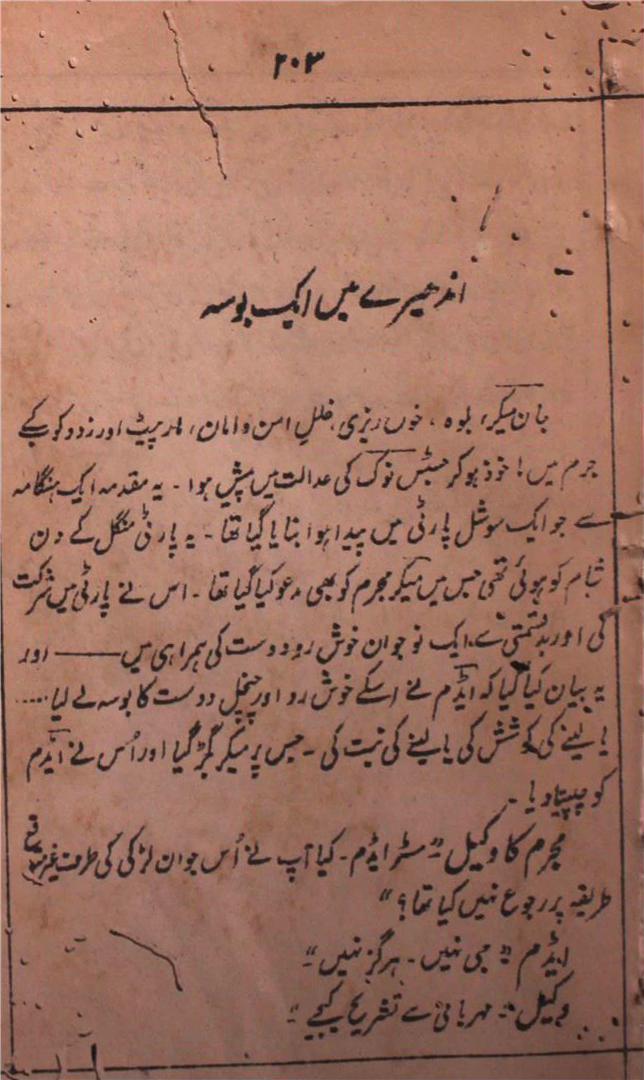 ۲۰۳
اندھیرے میں ایک بوسہ
جان میکر، بلوہ، خوں ریزی، خللِ امن و امان، مار پیٹ اور زدوکوب کے
جرم میں ماخوذ ہوکر جسٹس نوک کی عدالت میں پیش ہوا ۔ یہ مقدمہ ایک ہنگامہ
سے جو ایک سوشل پارٹی میں پیدا ہوا بنایا گیا تھا ۔ یہ پارٹی منگل کے دن
شام کو ہوئی تھی جس میں میکر مجرم کو بھی مدعو کیا گیا تھا ۔ اس نے پارٹی میں شرکت
کی اور بدقسمتی سے ایک نوجوان خوش رو دوست کی ہمراہی میں —— اور
یہ بیان کیا گیا کہ ایڈم نے اسکے خوش رو اور چنچل دوست کا بوسہ لے لیا .....
یا لینے کی کوشش کی یا لینے کی نیت کی ۔ جس پر میکر بگڑ گیا اور اُس نے ایڈم
کو چپیٹا دیا ۔
مجرم کا وکیل :۔ "مسٹر ایڈم ۔ کیا آپ نے اُس جوان لڑکی کی طرف غیر متوقع
طریقہ پر رجوع نہیں کیا تھا؟"
ایڈم "جی نہیں ۔ ہرگز نہیں"
وکیل :۔ "مہربانی سے تشریح کیجیے"